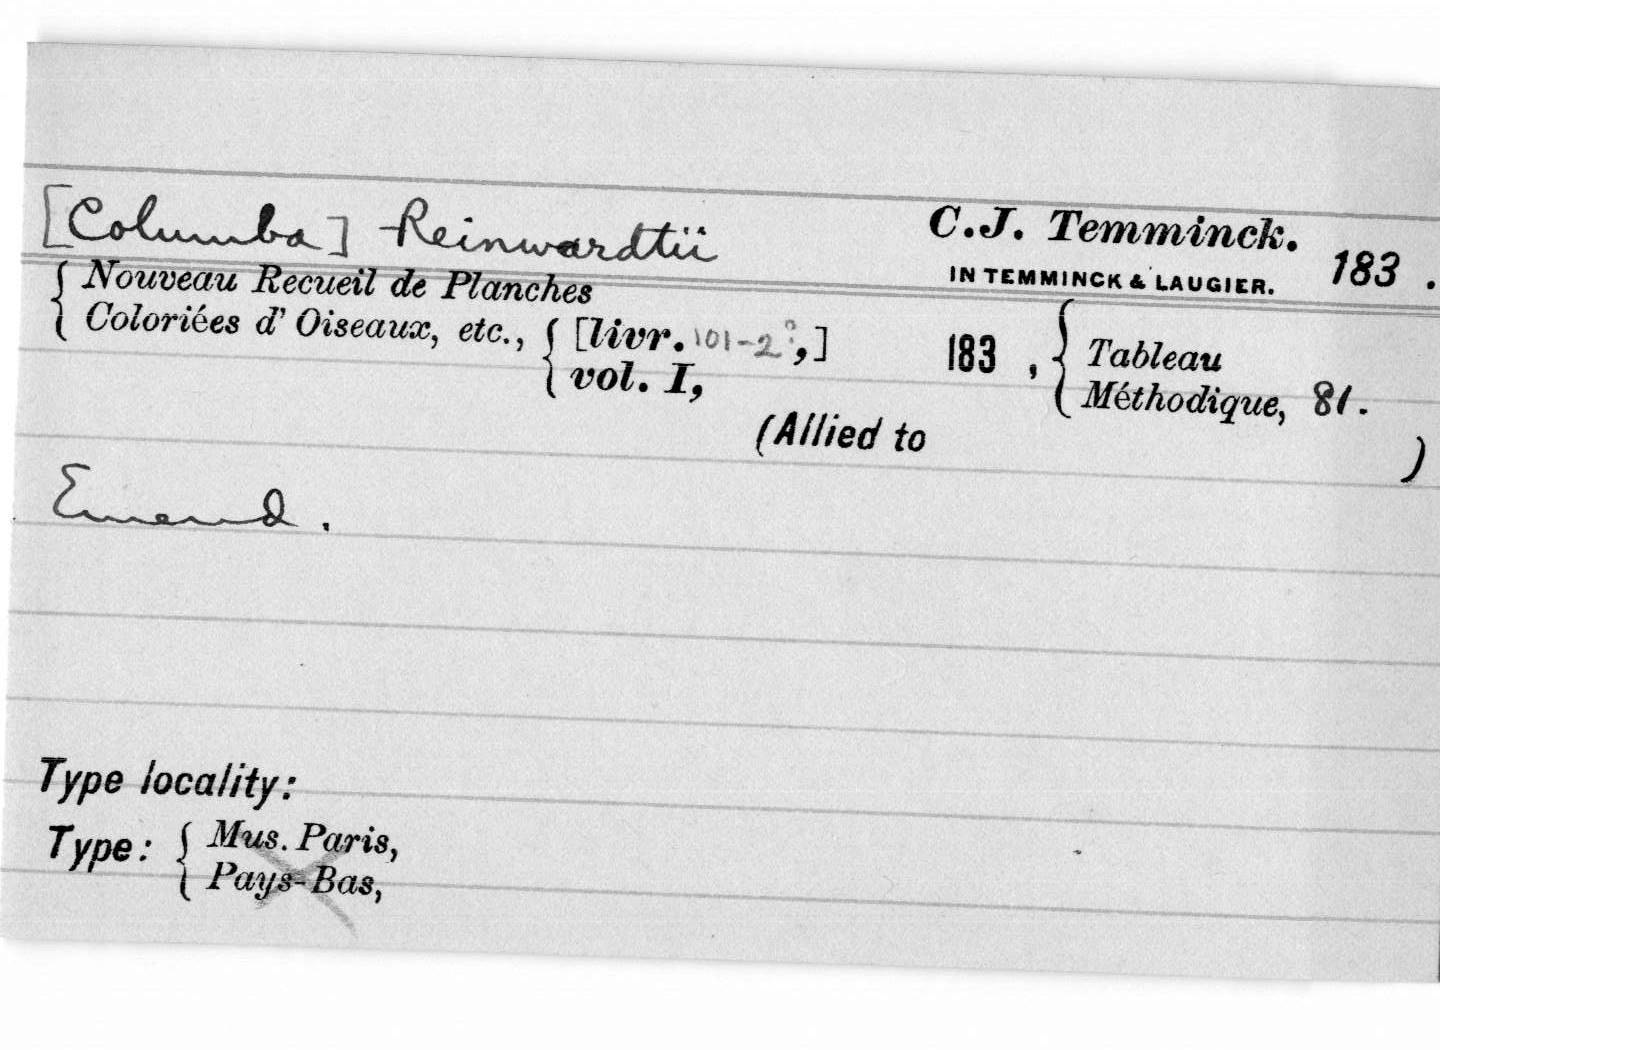 [Columba] Reinwardtii
C.J. Temminck.
IN TEMMINCK & LAUGIER. 183 .
{ Nouveau Recueil de Planches
Coloriées d' Oiseaux, etc., { [livr. 101-2?,] 183 , { Tableau
vol. I, Méthodique, 81.
(Allied to )
Emend.
Type locality:
Type: { Mus. Paris,
Pays-Bas,